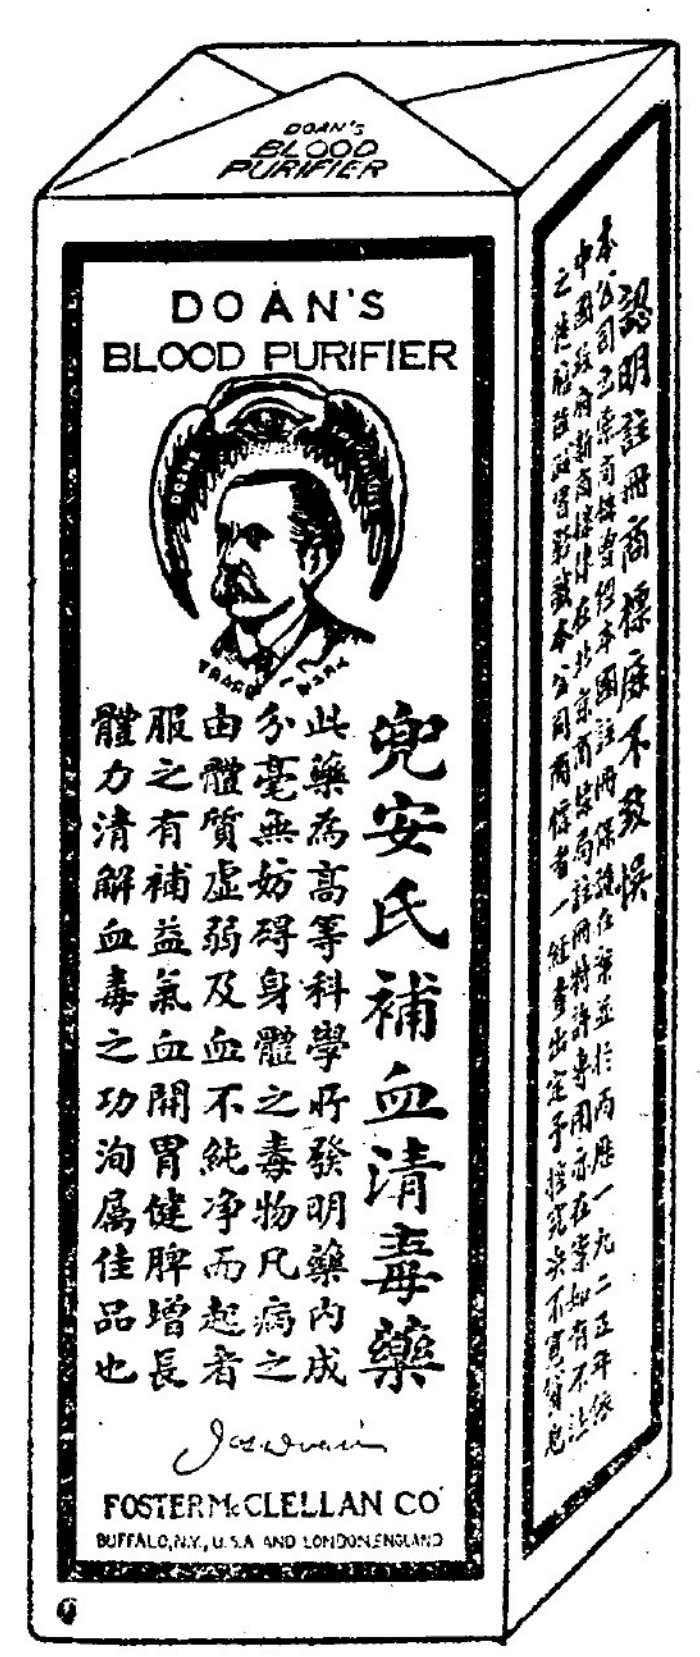 DOAN'S
BLOOD
PURIFIER
DOAN'S
BLOOD PURIFIER
兜安氏補血清毒藥
此藥為高等科學所發明藥內成
分毫無妨碍身體之毒物凡病之
由體質虛弱及血不純净而起者
服之有補益氣血開胃健脾增長
體力清解血毒之功洵属佳品也
FOSTER McCLELLAN CO
BUFFALO, N.Y., U.S.A AND LONDON, ENGLAND
認明註冊商標庶不致悮
本公司己商標曾經本國註冊保護在案並於西歷一九二年
中國政府新商標法在北京商標局註冊特許專用亦在案如有不法
之徒本公司商標者一經查出定予究決不寬貸